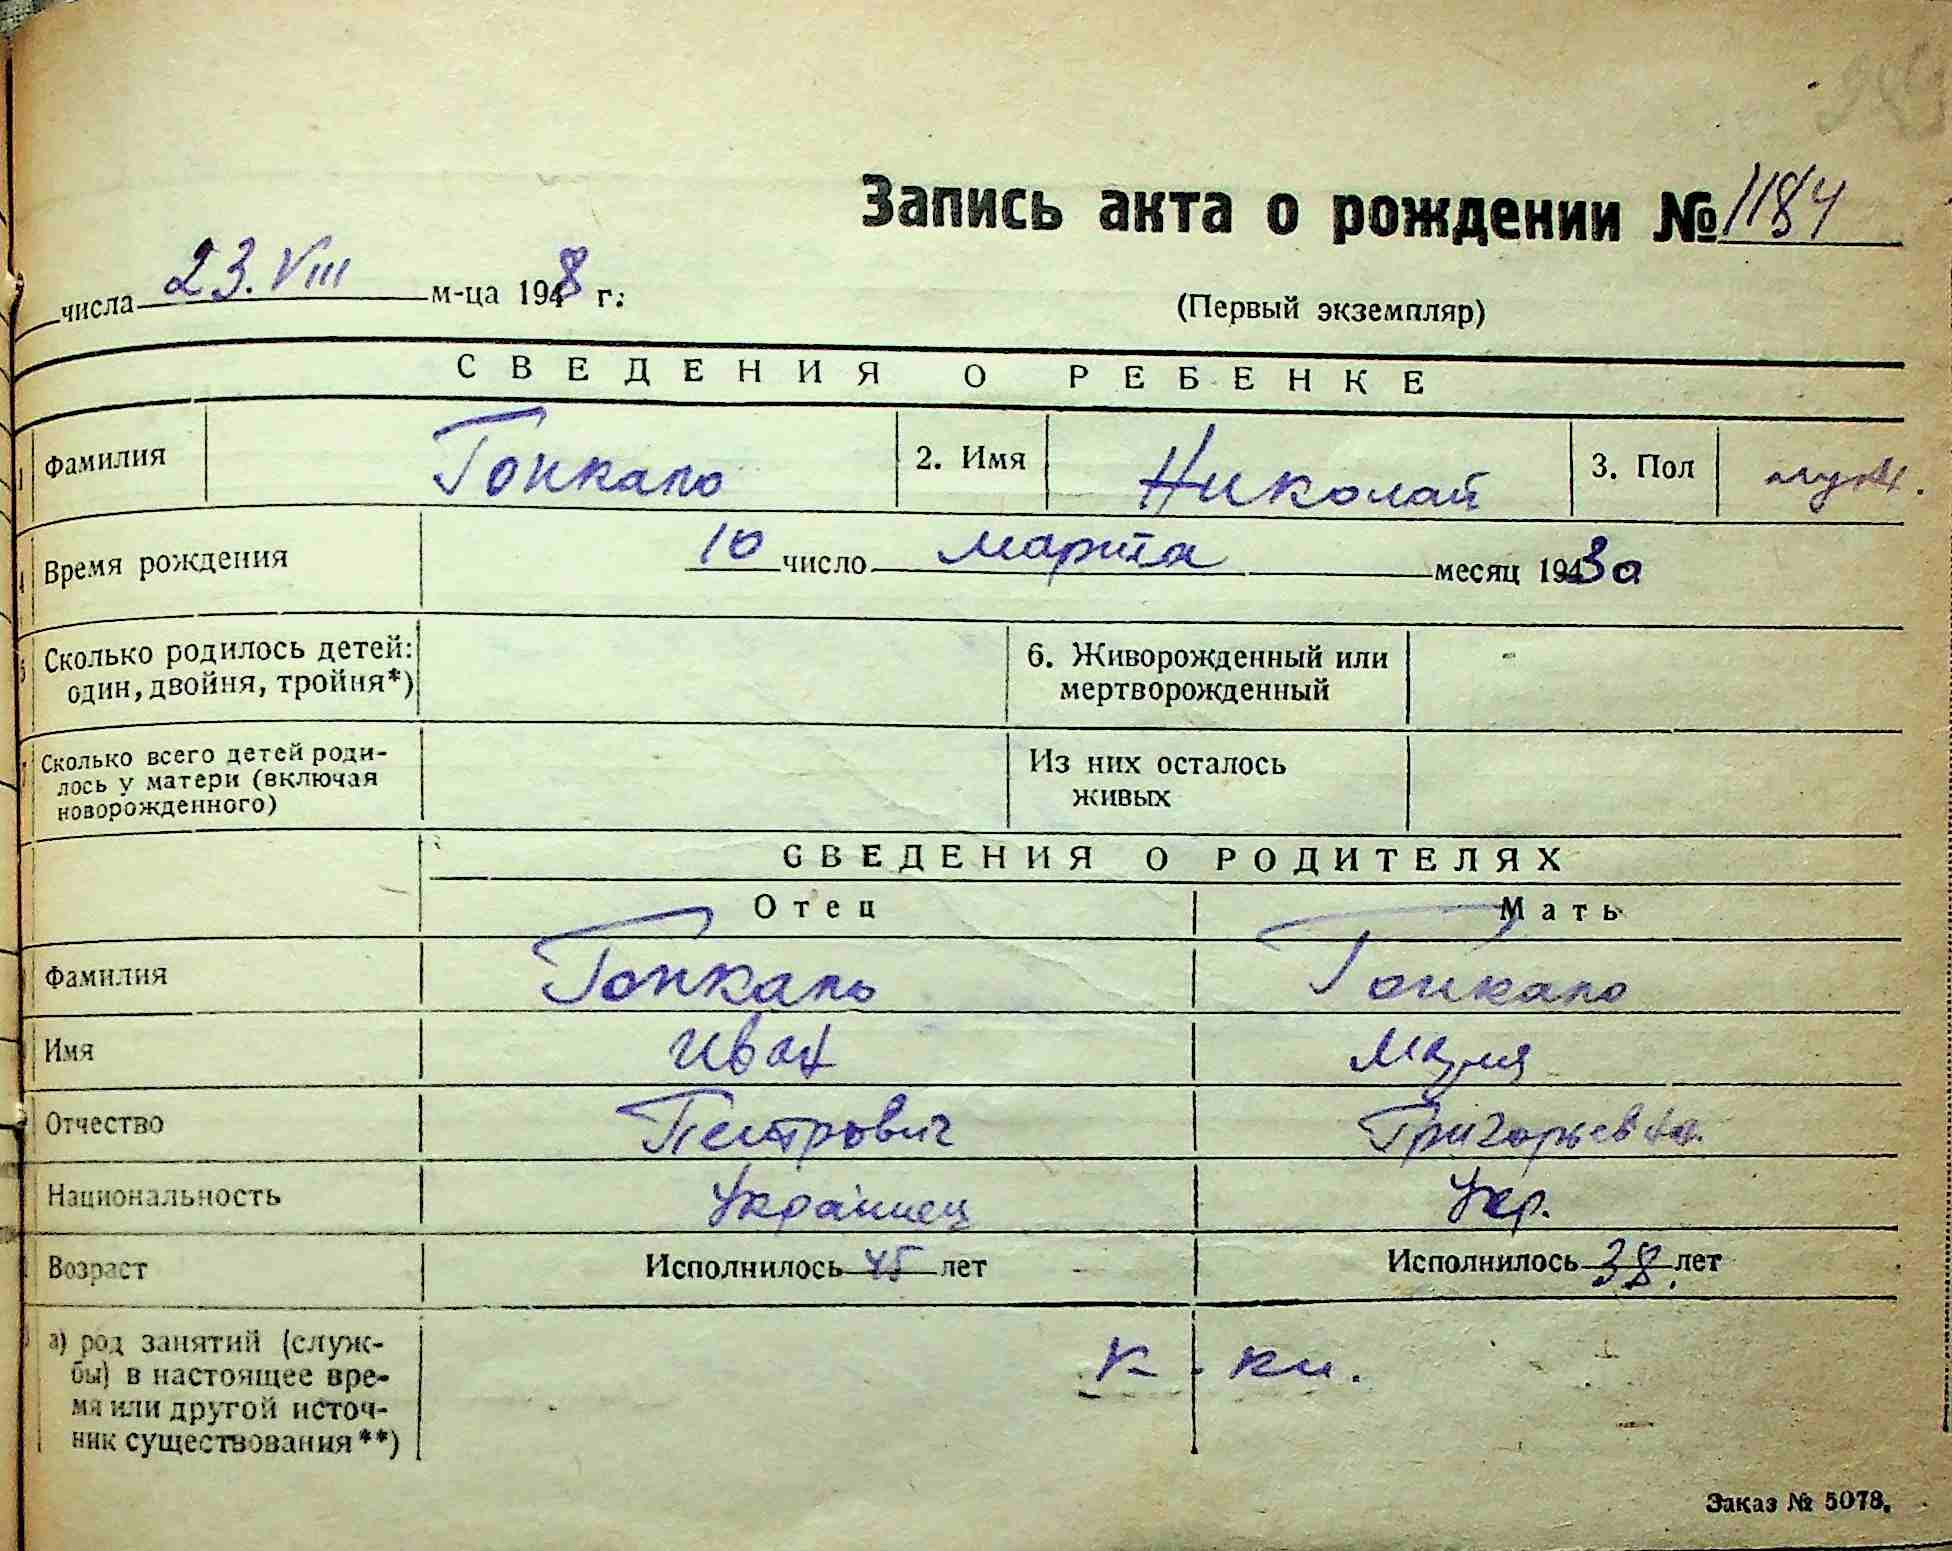 Запись акта о рождении № 1184
числа 23. VIII м-ца 1948 г.
(Первый экземпляр)
СВЕДЕНИЯ О РЕБЕНКЕ
1 Фамилия Гонкало 2. Имя Николай 3. Пол мужч.
4 Время рождения 10 число марта месяц 193
5 Сколько родилось детей: 6. Живорожденный или
один, двойня, тройня*) мертворожденный
7 Сколько всего детей роди- Из них осталось
лось у матери (включая живых
новорожденного)
СВЕДЕНИЯ О РОДИТЕЛЯХ
Отец Мать
Фамилия Гонкало Гонкало
Имя Иван Мария
Отчество Петрович Григорьевна
Национальность Украинец Укр.
Возраст Исполнилось 45 лет Исполнилось 38 лет
а) род занятий (служ-
бы) в настоящее вре- к-ки.
мя или другой источ-
ник существования**)
Заказ № 5078.